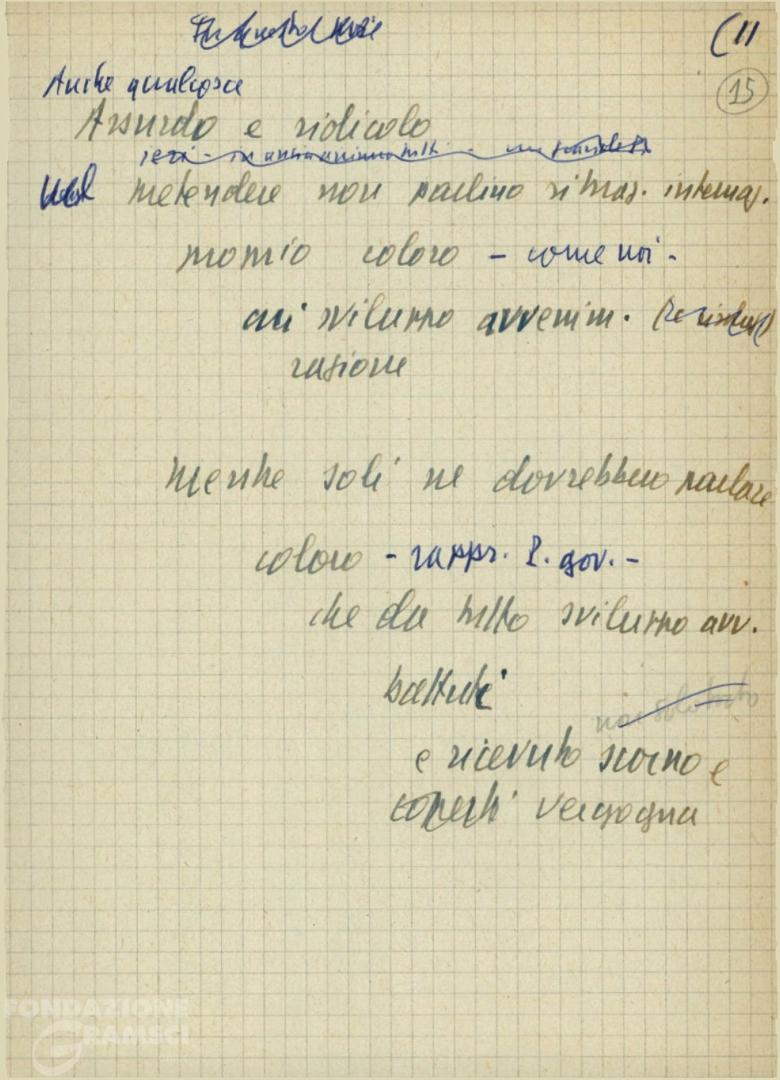 (11
15
Anche qualcosa
Assurdo e ridicolo
nel pretendere non parlino situaz. internaz.
proprio coloro - come noi -
cui sviluppo avvenim.
ragione
mentre soli ne dovrebbero parlare
coloro - rappr. P. gov. -
che da tutto sviluppo avv.
battuti
non soltanto
e ricevuto scorno e
coperti vergogna
FONDAZIONE
GRAMSCI